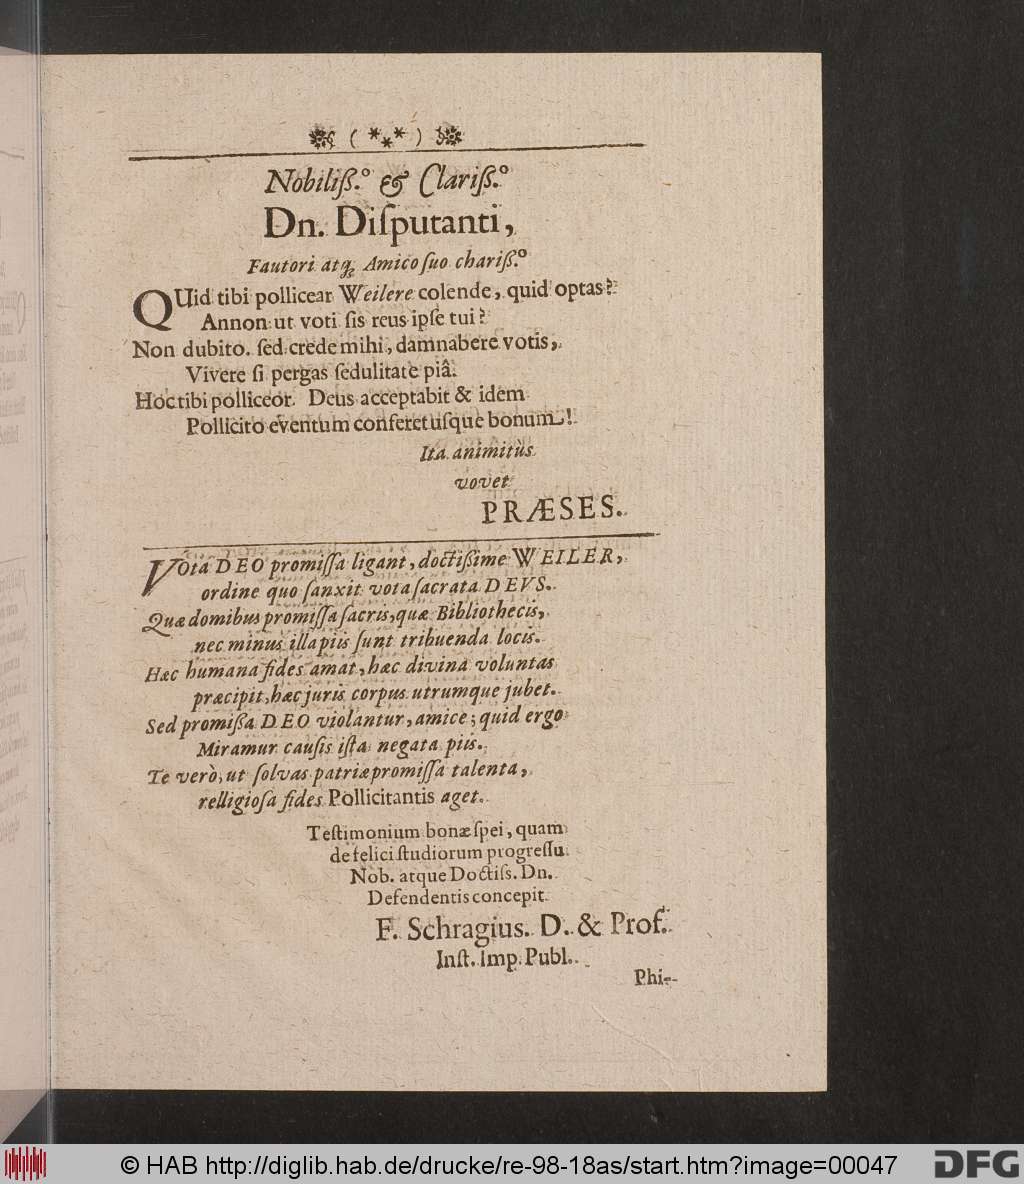 ( *** )
Nobiliß.º & Clariß.º
Dn. Diſputanti,
Fautori atq; Amico ſuo chariß.º
QUid tibi pollicear Weilere colende, quid optas?
Annon ut voti ſis reus ipſe tui?
Non dubito. ſed crede mihi, damnabere votis,
Vivere ſi pergas ſedulitate piâ.
Hoc tibi polliceor. Deus acceptabit & idem
Pollicito eventum conferet uſque bonum!
Ita animitùs
vovet
PRÆSES.
VOta DEO promiſſa ligant, doctißime WEILER,
ordine quo ſanxit vota ſacrata DEVS.
Quæ domibus promiſſa ſacris, quæ Bibliothecis,
nec minus illa piis ſunt tribuenda locis.
Hæc humana fides amat, hæc divina voluntas
præcipit, hæc juris corpus utrumque jubet.
Sed promißa DEO violantur, amice; quid ergo
Miramur cauſis iſta negata piis.
Te verò, ut ſolvas patriæ promiſſa talenta,
relligioſa fides Pollicitantis aget.
Teſtimonium bonæ ſpei, quam
de felici ſtudiorum progreſſu
Nob. atque Doctiſs. Dn.
Defendentis concepit
F. Schragius. D. & Prof.
Inſt. Imp. Publ.
Phi-
© HAB http://diglib.hab.de/drucke/re-98-18as/start.htm?image=00047
DFG